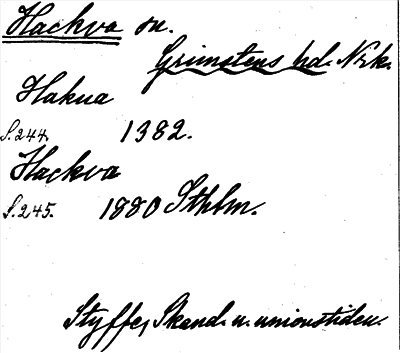 Hackva sn.
Grimstens hd. Nrk.
Hakua
S. 244. 1382.
Hackva
S. 245. 1880 Sthlm.
Styffe, Skand. u. unionstiden.